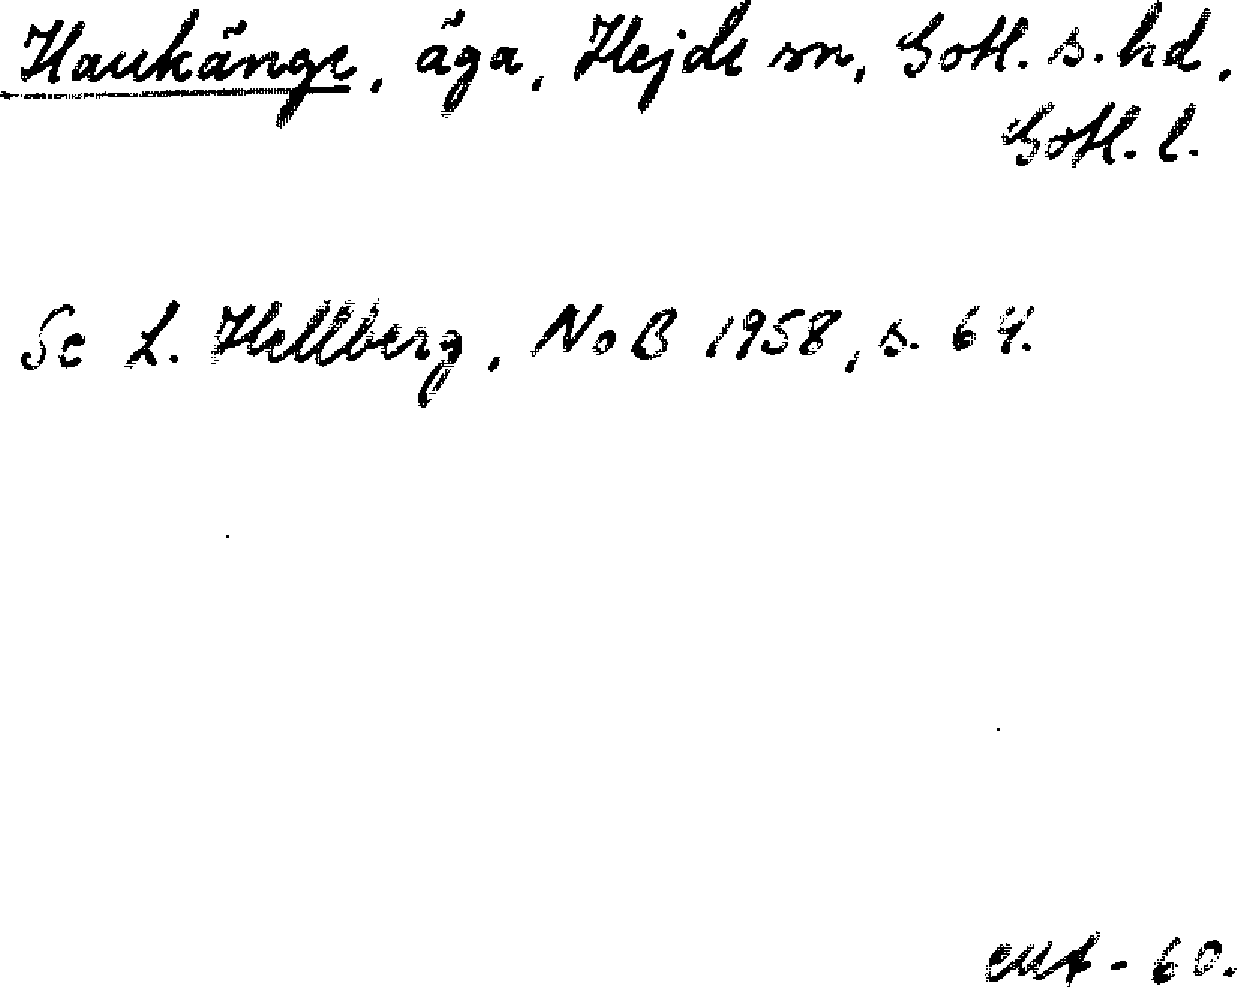 Haukänge, äga, Hejde sn, Gotl. s. hd,
Gotl. l.
Se L. Hellberg, NoB 1958, s. 64.
- 60.